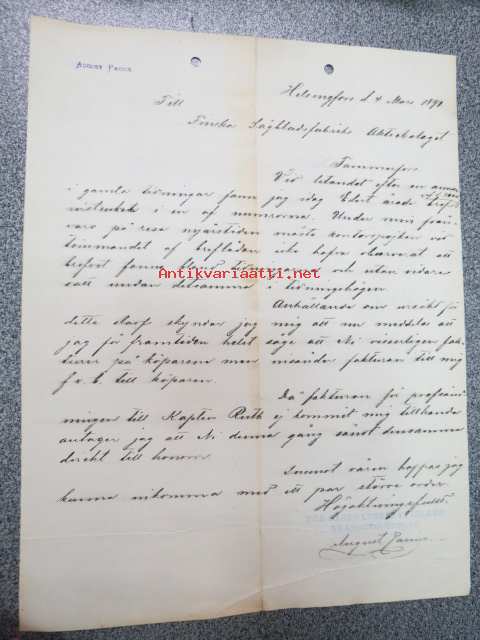 AUGUST PARUS
Helsingfors d. 4 Mars 1898
Till
Finska Sågbladsfabriks Aktiebolaget
Tammerfors
Vid letandet efter en annan
i gamla tidningar fann jag idag Edert ärade
instucket i en af numrorna. Under min från-
varo på resa nyårstiden måste kontorspojken vid
tömmandet af breflådan icke hafva observerat att
brefvet fanns och utan vidare
satt undan detsamma i tidningshögen.
Anhållande om ursäkt för
detta slarf skyndar jag mig att nu meddela att
jag för framtiden helst såge att Ni visserligen fak-
turer på köparen men insänder fakturan till mig
f. v. b. till köparen.
Då fakturan för profsänd
ningen till Kapten Ruth ej kommit mig tillhanda
antager jag att Ni denna gång sändt densamma
direkt till honom.
Snart våren hoppas jag
kunna inkomma med ett par större order.
Högaktningsfullt
August Parus
Antikvariaatti.net